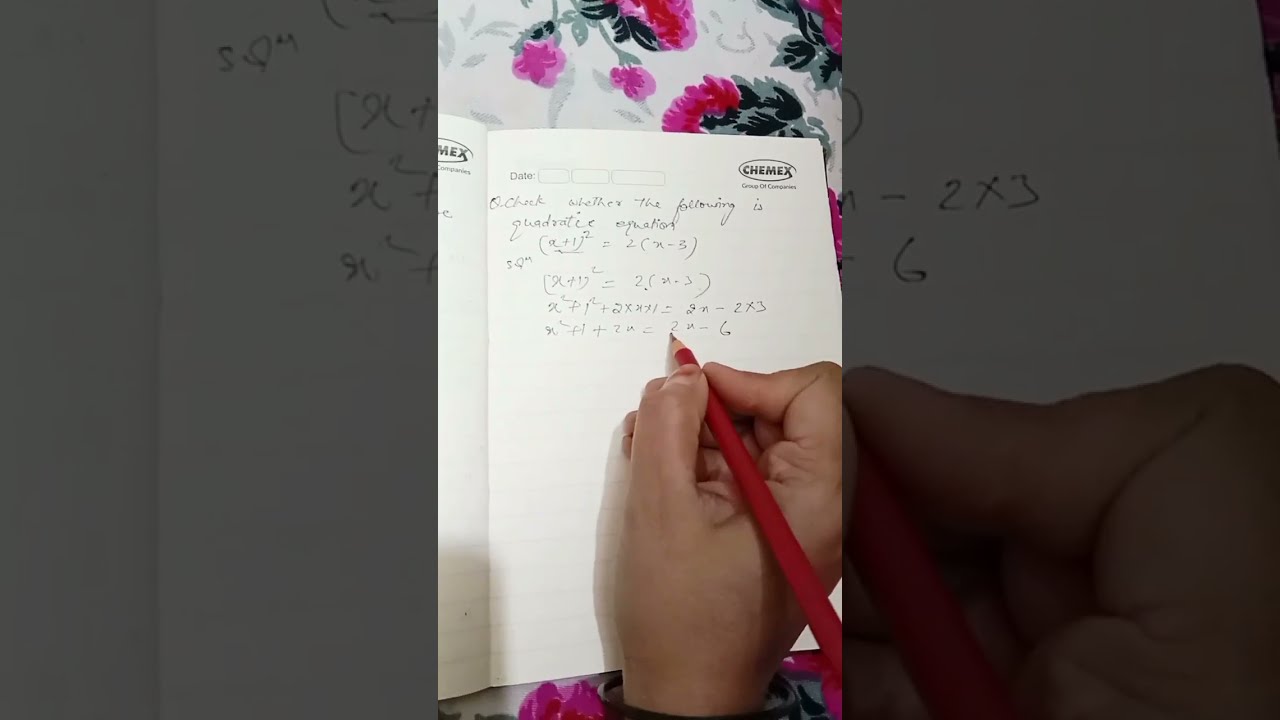 MEX
Companies
Date:
CHEMEX
Group Of Companies
Q. Check whether the following is
quadratic equation
(x+1)² = 2(x-3)
solⁿ
(x+1)² = 2(x-3)
x²+1²+2×x×1 = 2x - 2×3
x²+1+2x = 2x - 6